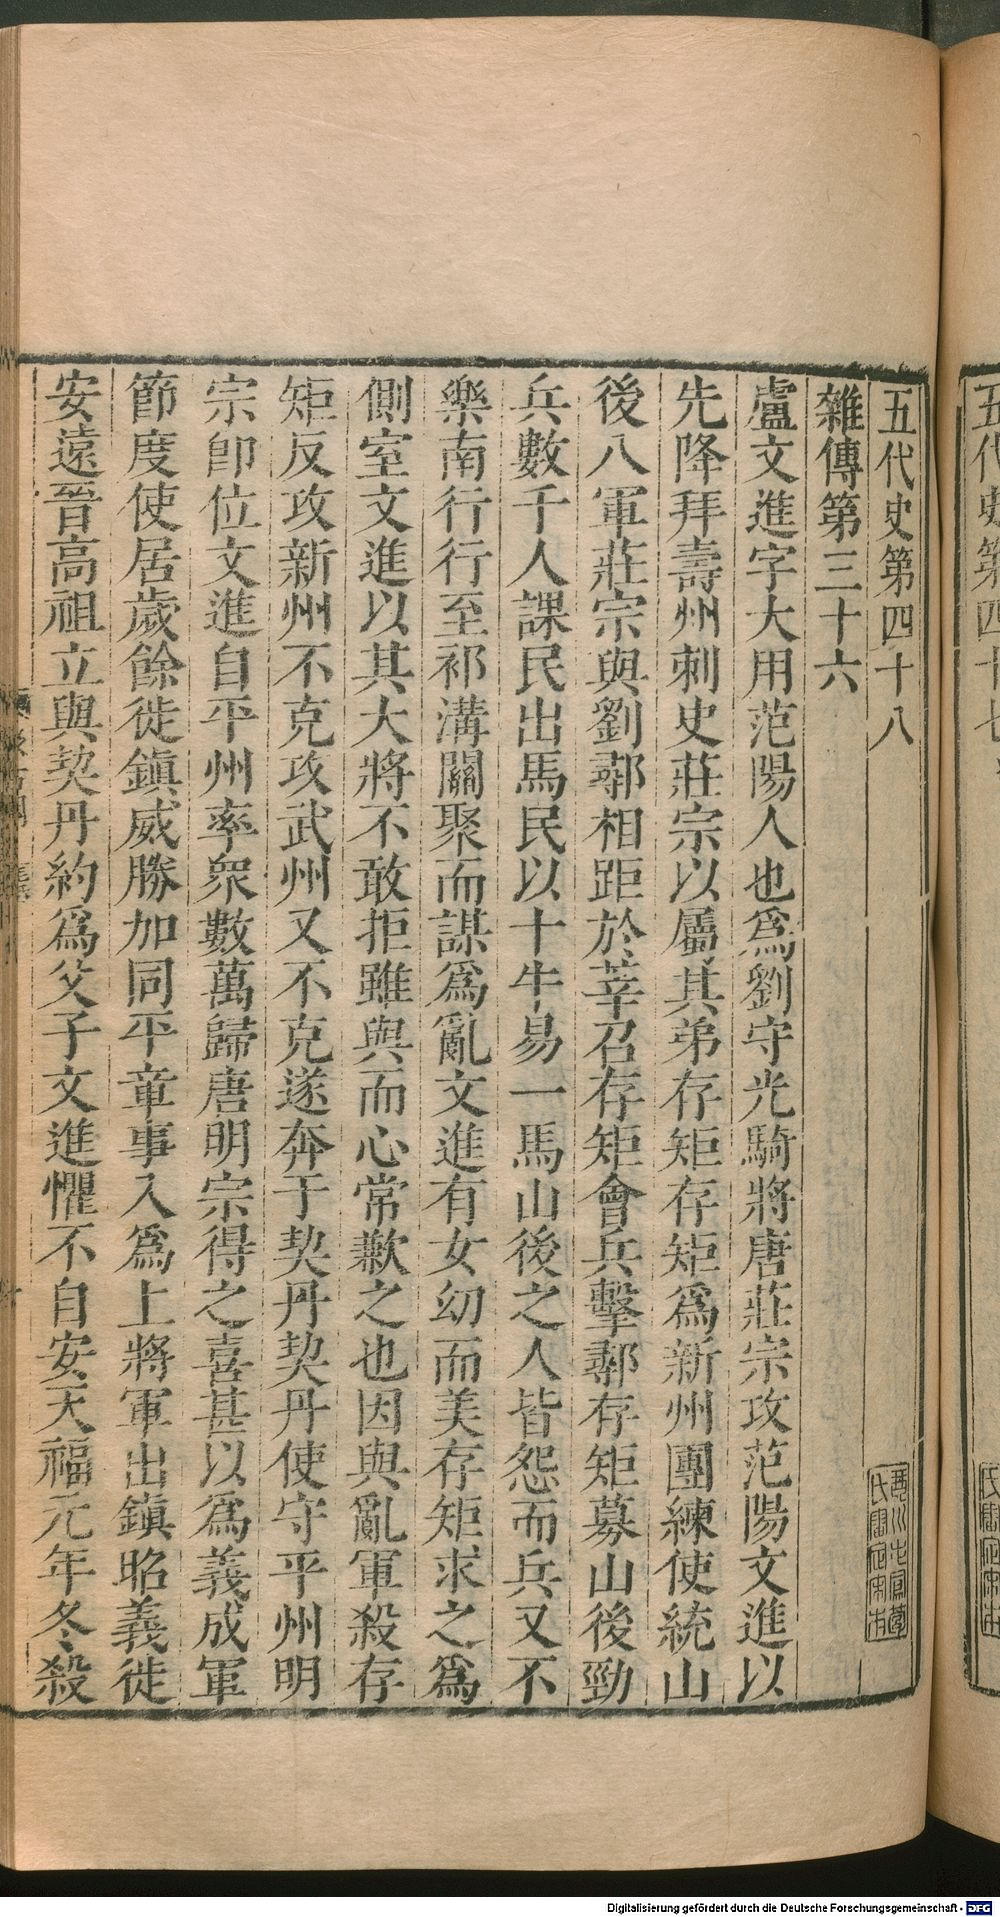 五代史第四十八
雜傳第三十六
盧文進字大用范陽人也爲劉守光騎將唐莊宗攻范陽文進以
先降拜壽州刺史莊宗以屬其弟存矩存矩爲新州團練使統山
後八軍莊宗與劉鄩相距於莘召存矩會兵擊鄩存矩募山後勁
兵數千人課民出馬民以十牛易一馬山後之人皆怨而兵又不
樂南行行至祁溝關聚而謀爲亂文進有女幼而美存矩求之爲
側室文進以其大將不敢拒雖與而心常歉之也因與亂軍殺存
矩反攻新州不克攻武州又不克遂奔于契丹契丹使守平州明
宗卽位文進自平州率眾數萬歸唐明宗得之喜甚以爲義成軍
節度使居歲餘徙鎮威勝加同平章事入爲上將軍出鎮昭義徙
安遠晉高祖立與契丹約爲父子文進懼不自安天福元年冬殺
五代史第四十七
Digitalisierung gefördert durch die Deutsche Forschungsgemeinschaft - DFG